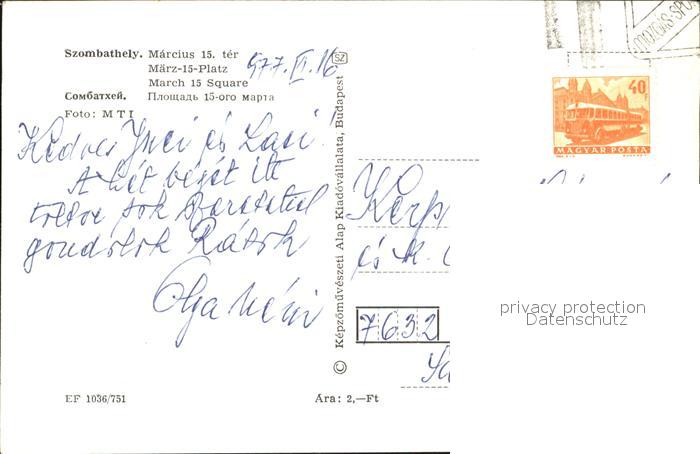 Szombathely. Március 15. tér
März-15-Platz
March 15 Square
Сомбатхей. Площадь 15-ого марта
Foto: MTI
977. VI. 16
Kedves Inci és Laci!
A hét végét itt
töltve sok szeretettel
gondolok Rátok
Olga néni
EF 1036/751
Ára: 2,—Ft
© Képzőművészeti Alap Kiadóvállalata, Budapest
SZ
40 F
MAGYAR POSTA
MOZGÁS-SPO
Kerp
és
7632
privacy protection
Datenschutz